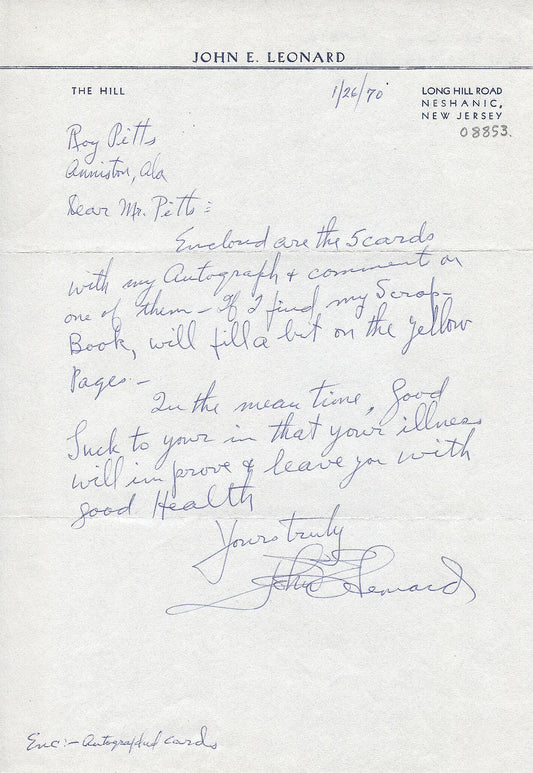 JOHN E. LEONARD
THE HILL
1/26/70
LONG HILL ROAD
NESHANIC,
NEW JERSEY
08853.
Roy Pitts
Anniston, Ala
Dear Mr. Pitts:
Enclosed are the 5 cards
with my Autograph & comment on
one of them - If I find my Scrap-
Book, will fill a bit on the yellow
Pages. -
In the mean time, Good
Luck to your in that your illness
will improve & leave you with
good Health
Yours truly
John E Leonard
Enc: - Autographed cards